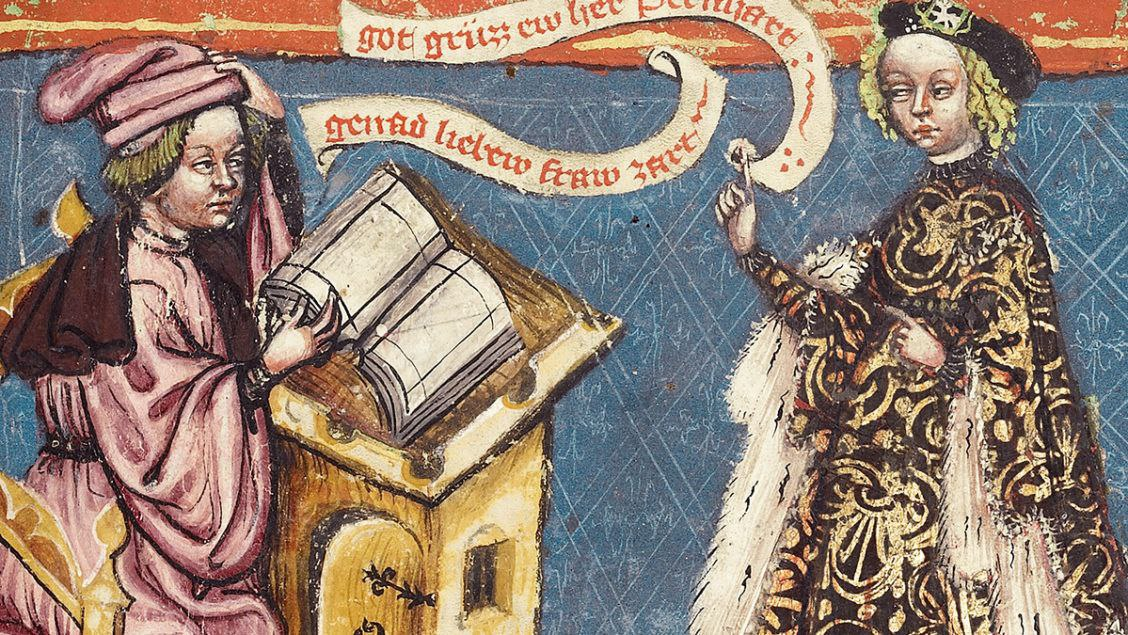 got grüzz ew her Pernhart
genad liebew fraw zart